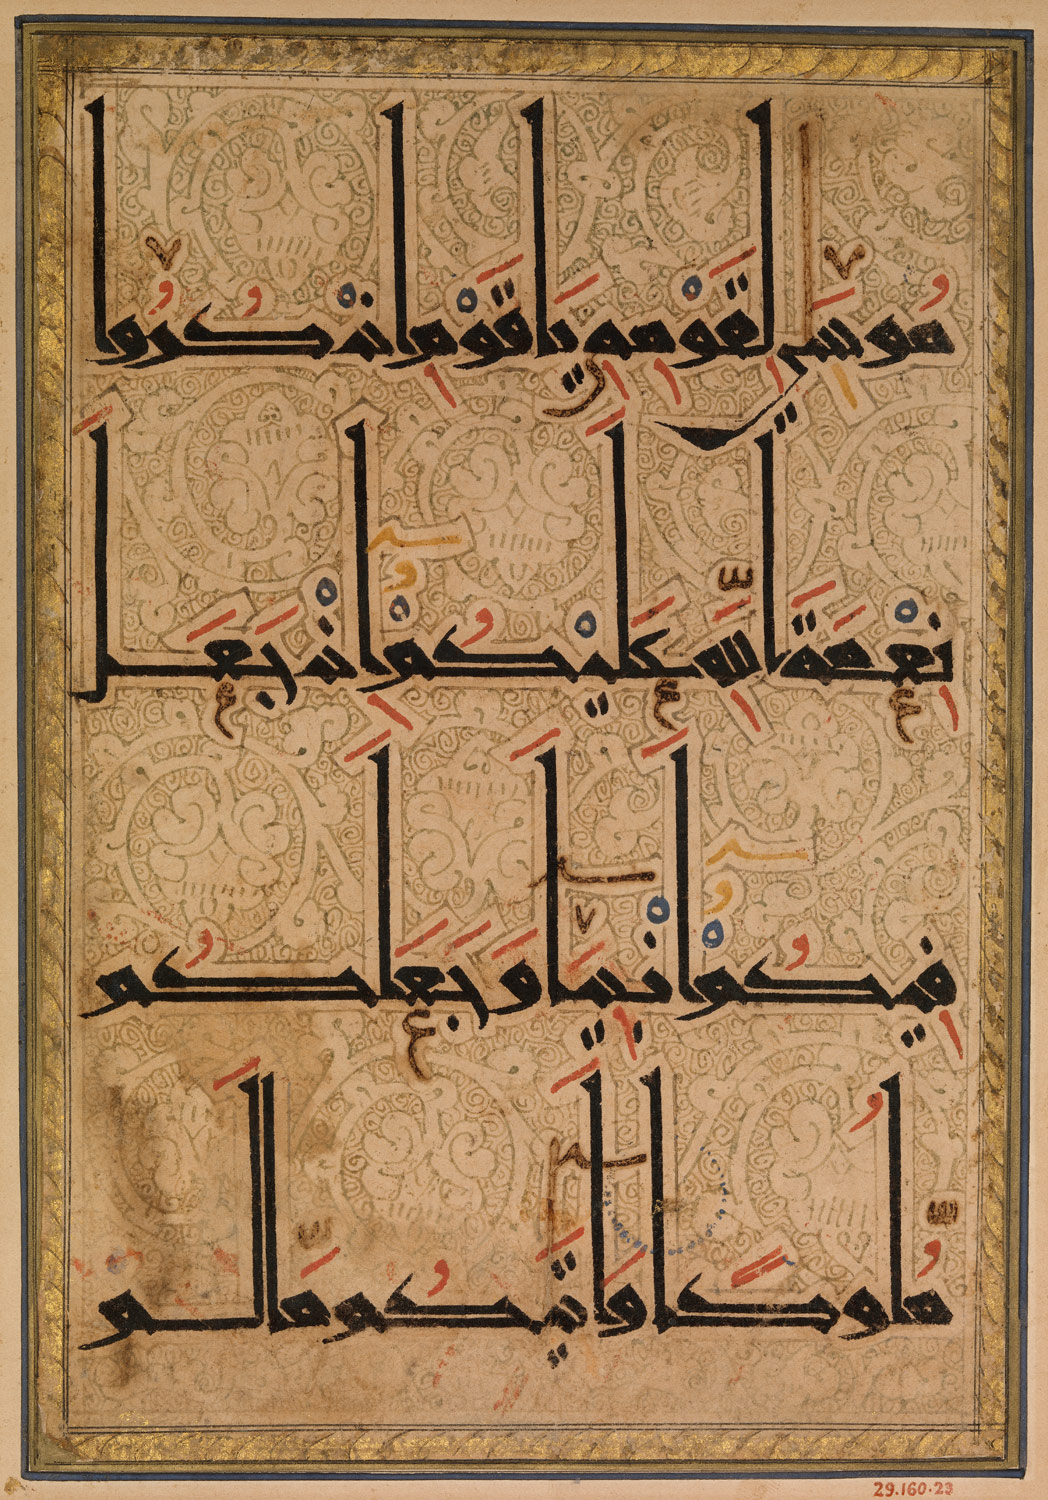 مُوسَىٰ لِقَوْمِهِ يَاقَوْمِ اذْكُرُوا
نِعْمَةَ اللَّهِ عَلَيْكُمْ إِذْ جَعَلَ
فِيكُمْ أَنْبِيَاءَ وَجَعَلَكُمْ
مُلُوكًا وَآتَيكُم مَّا لَمْ
29.160.23